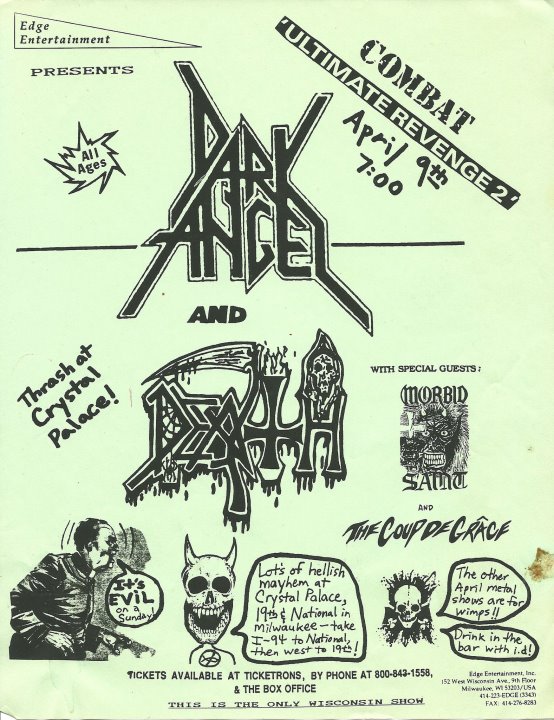 Edge
Entertainment
PRESENTS
COMBAT
'ULTIMATE REVENGE 2'
April 9th
7:00
All
Ages
DARK
ANGEL
AND
Thrash at
Crystal
Palace!
DEATH
WITH SPECIAL GUESTS:
MORBID
SAINT
AND
THE COUP DE GRÂCE
It's
EVIL
on a
Sunday!
Lots of hellish
mayhem at
Crystal Palace,
19th & National in
Milwaukee - take
I-94 to National,
then west to 19th!
The other
April metal
shows are for
wimps!!
Drink in the
bar with i.d.!
TICKETS AVAILABLE AT TICKETRONS, BY PHONE AT 800-843-1558,
& THE BOX OFFICE
THIS IS THE ONLY WISCONSIN SHOW
Edge Entertainment, Inc.
152 West Wisconsin Ave., 9th Floor
Milwaukee, WI 53203/USA
414-223-EDGE (3343)
FAX: 414-276-8283